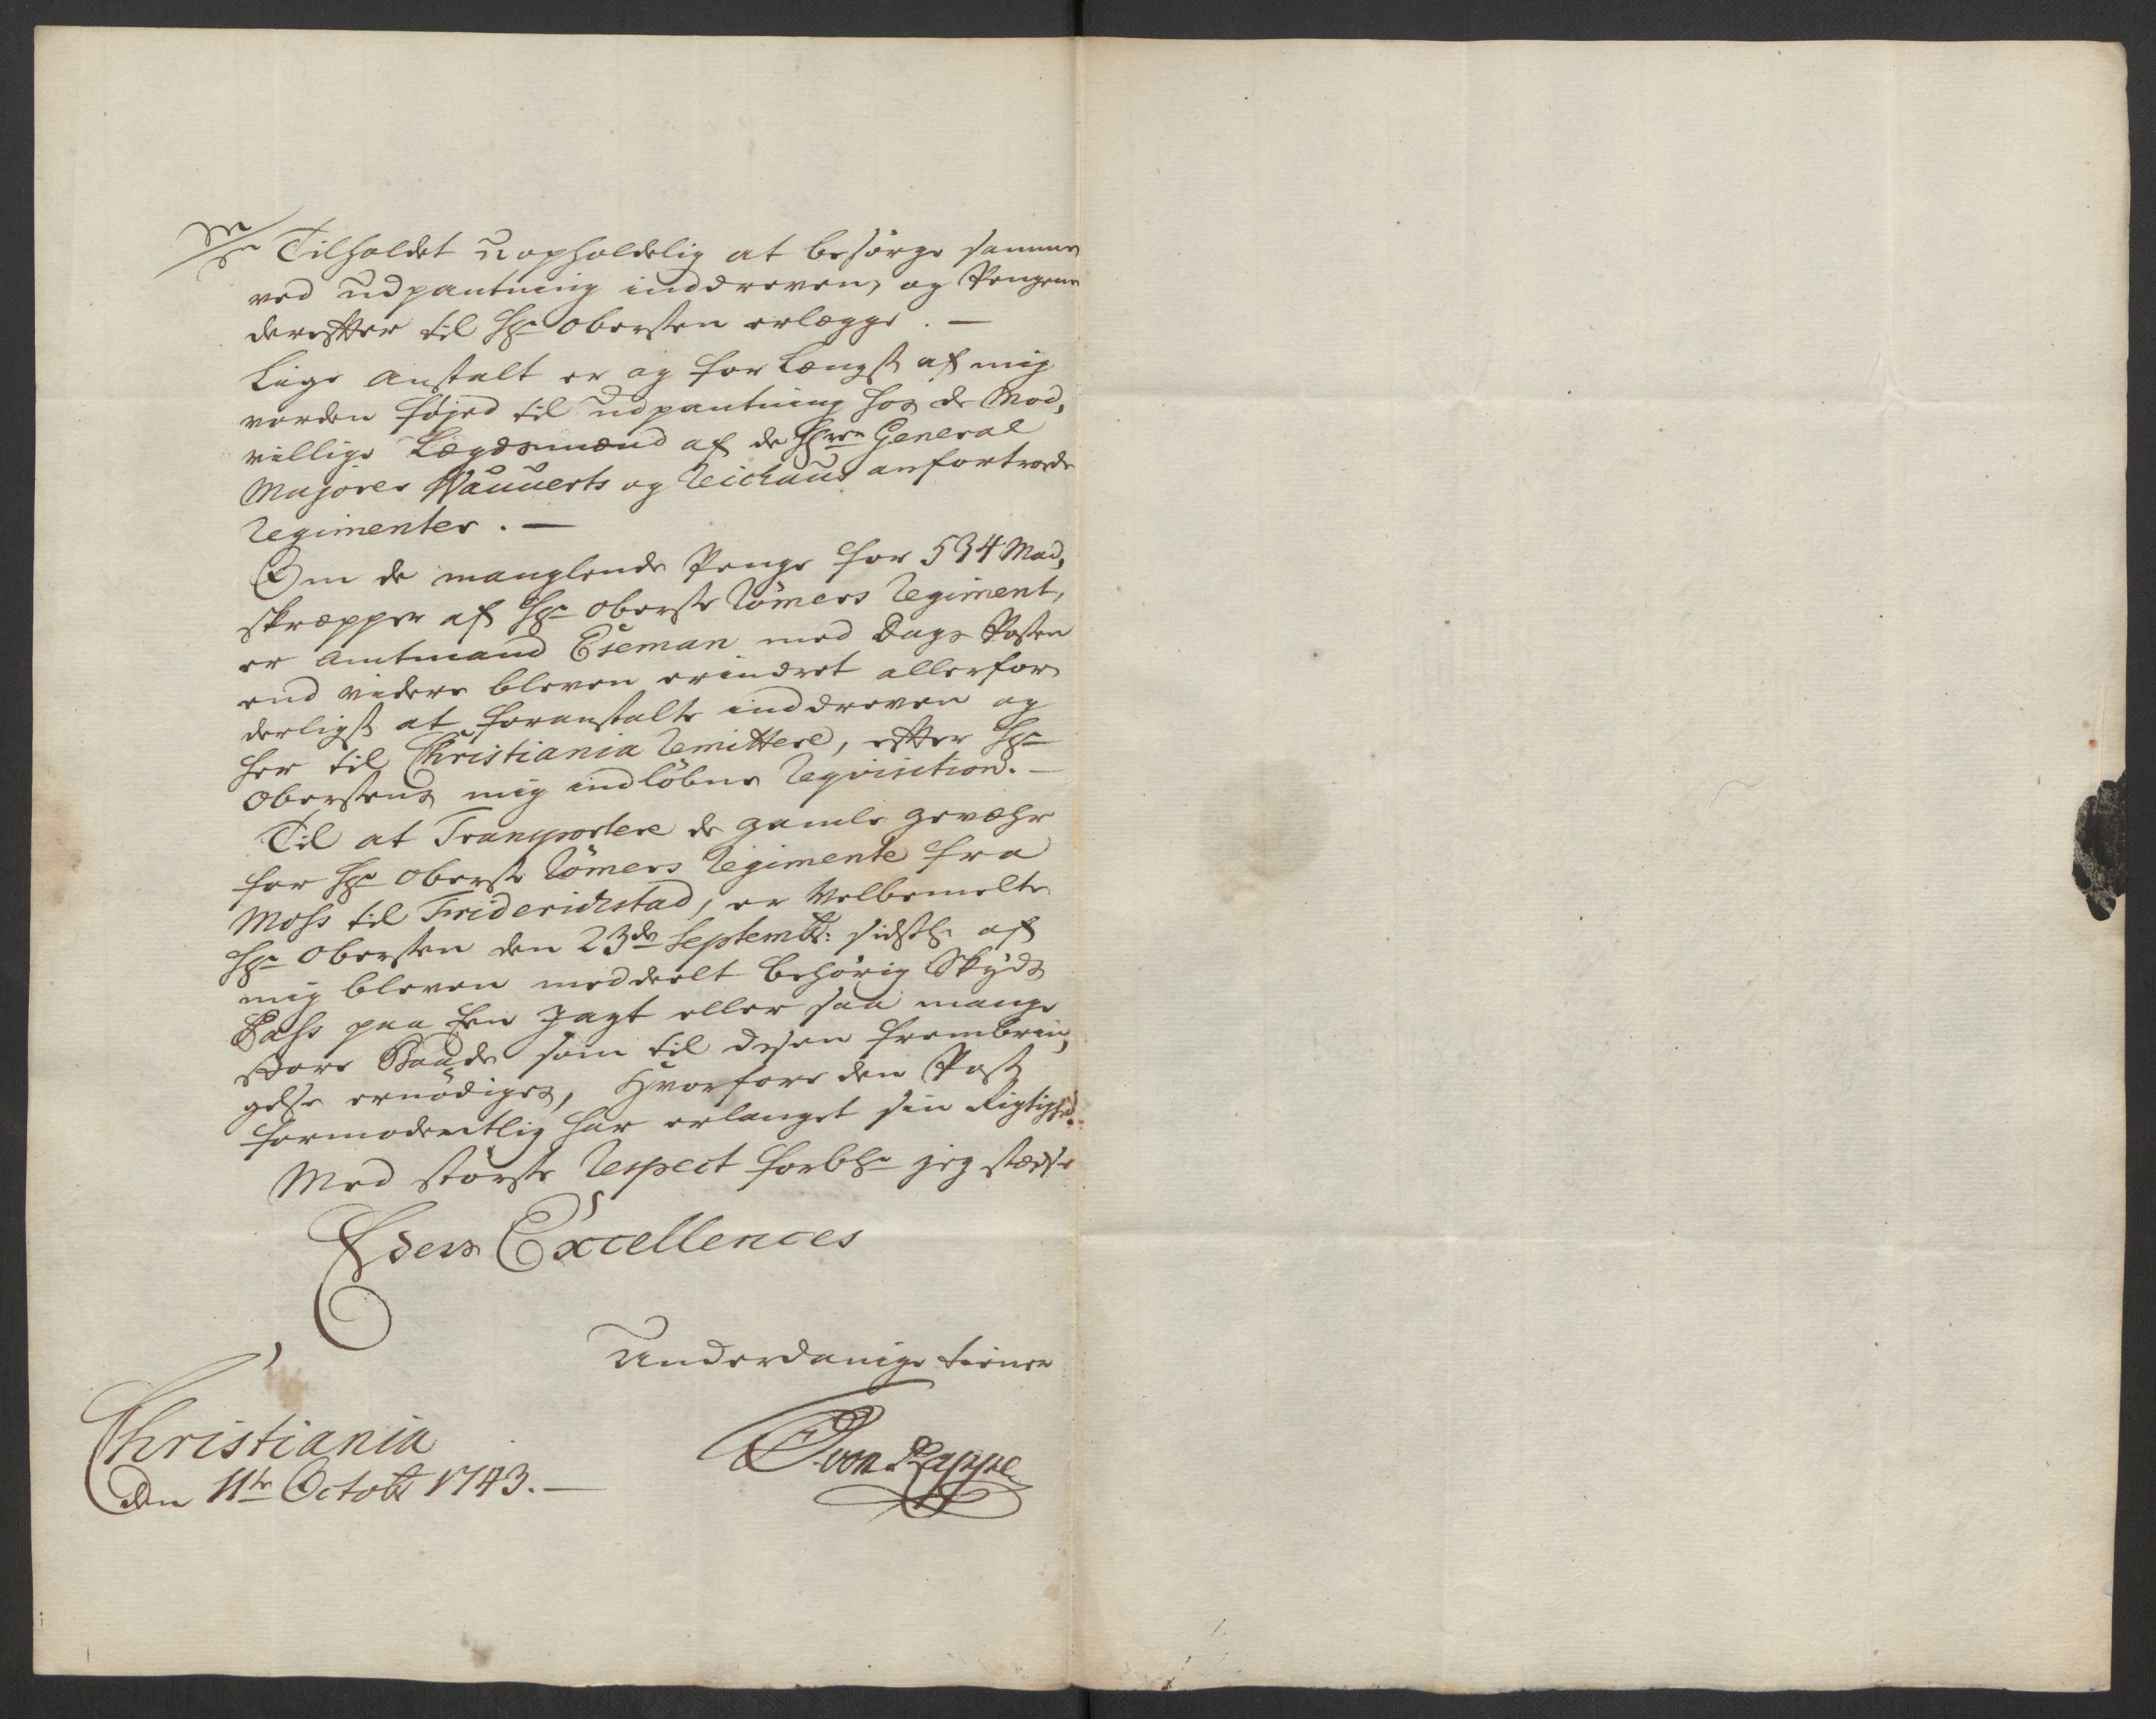 Tilholdet Uopholdelig at besørge samme
ved udpantning inddreven, og Pengene
derefter til Hr Obersten erlægge. —
Lige Anstalt er og for Længst af mig
vorden føjed til udpantning hos de Mod,
villige Lægdsmænd af de Hrrr General
Majorer Wauuerts og Reichaus anfortroede
Regimenter. —
Om de manglende Penge for 534 Mad,
skræpper af Hr Oberste Rømers Regiment,
er Amtmand Eseman med Dags Posten
end videre bleven erindret allerfor
derligst at foranstalte inddreven og
her til Christiania Remittere, efter Hr
Oberstens mig indløbne Reqvisition. —
Til at Transportere de gamle Gevæhr
for Hr Oberste Römers Regimente fra
Moss til Friderichstad, er Velbemelte
Hr Obersten den 23de Septembr: sidstl: af
mig bleven meddeelt behørig Skyds
Pass paa Een Jagt eller saa mange
store Baade som til dessen frembrin,
gelse ernødiges, Hvorfore den Post
formodentlig har erlanget sin Rigtighed.
Med største Respect forblr jeg stædse
Eders Excellences
Underdanige tiener
Christiania
den 11te Octobr 1743. —
von Rappe